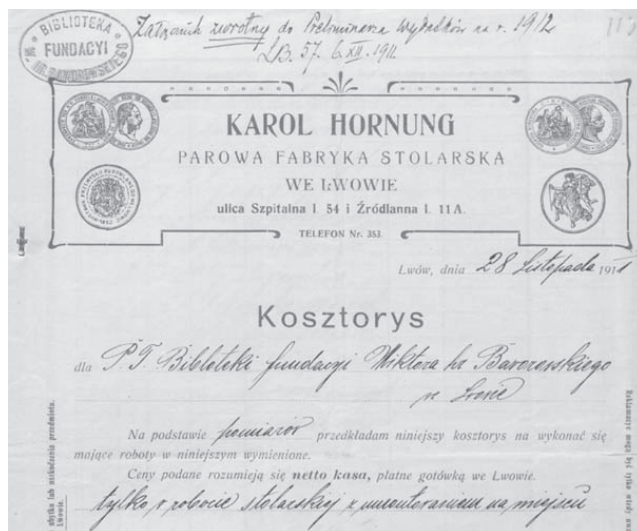 Załącznik zwrotny do Preliminarza wydatków na r. 1912
LB. 57. 6.XII.1911
113
BIBLIOTEKA
FUNDACYI
KAROL HORNUNG
PAROWA FABRYKA STOLARSKA
WE LWOWIE
ulica Szpitalna l. 54 i Źródlanna l. 11A.
TELEFON Nr. 353.
Lwów, dnia 28 Listopada 1911
Kosztorys
dla P.T. Bibloteki fundacyi Wiktora hr Baworowskiego
we Lwowie
Na podstawie pomiarów przedkładam niniejszy kosztorys na wykonać się
mające roboty w niniejszym wymienione.
Ceny podane rozumieją się netto kasa, płatne gotówką we Lwowie.
tylko o robocie stolarskiej z umontowaniem na miejscu
ubytku lub uszkodzenia przedmiotu.
Lwowie.